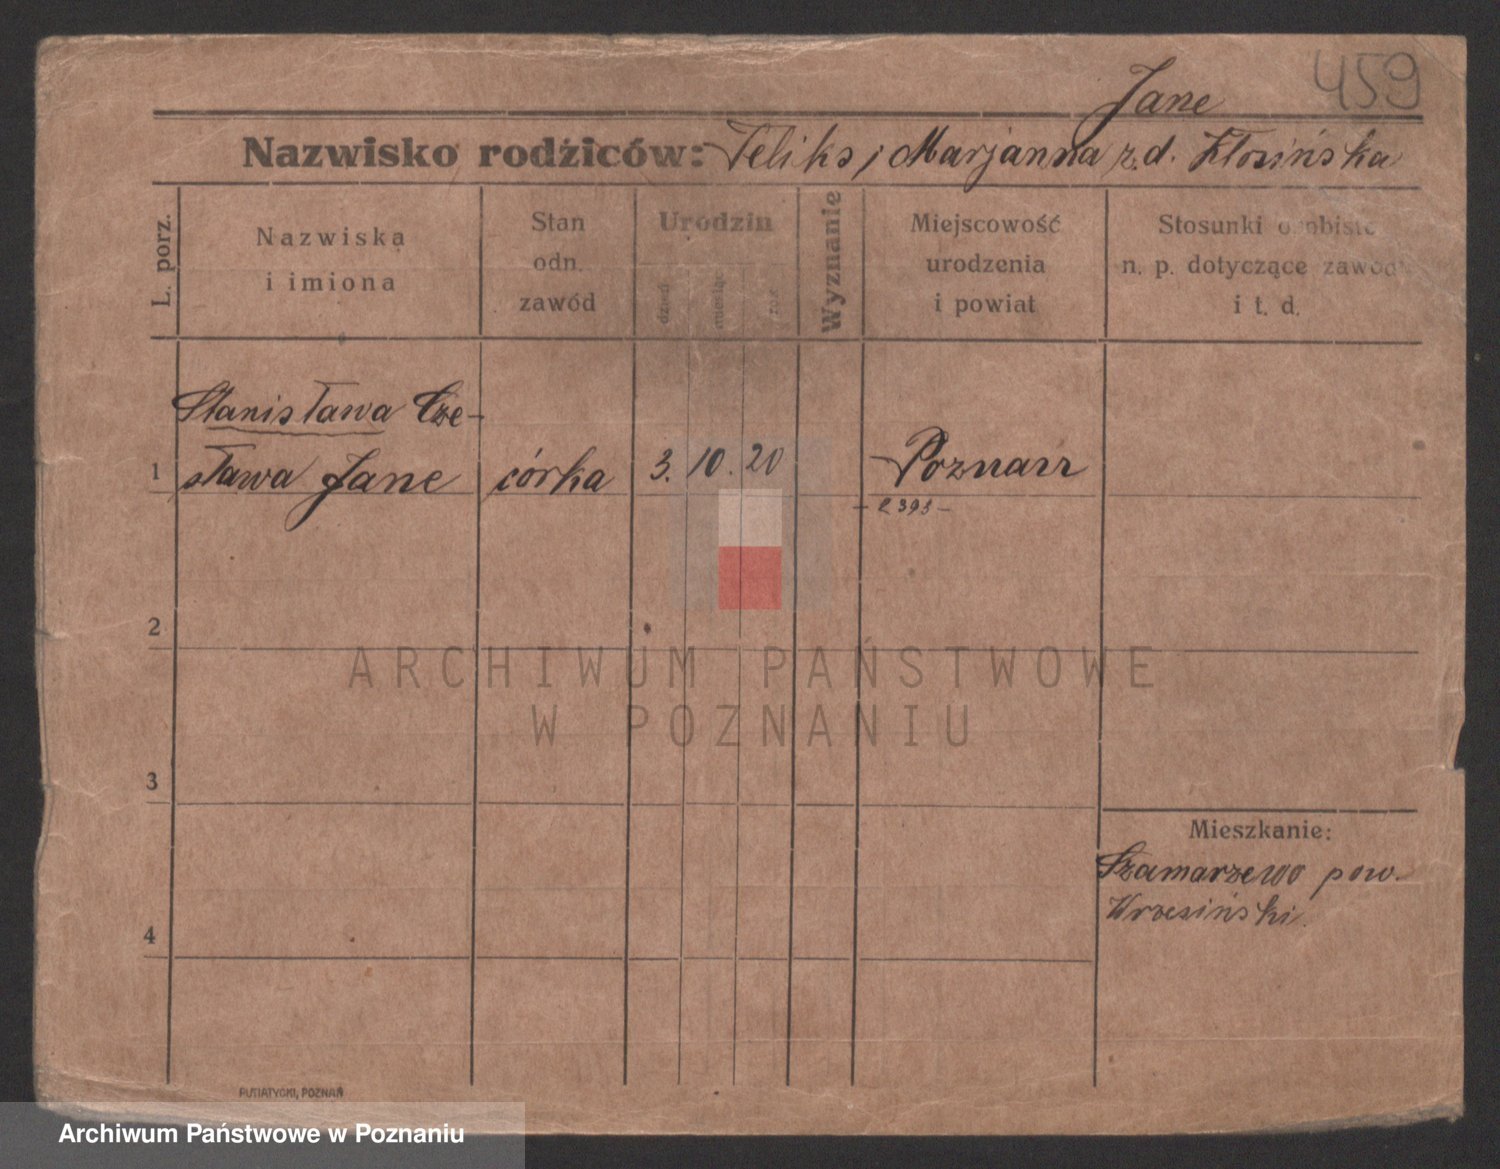 459
Jane
Nazwisko rodziców: Feliks i Marjanna z.d. Kłosińska
L. porz.
Nazwiska
i imiona
Stan
odn.
zawód
Urodzin
dzień
miesiąc
rok
Wyznanie
Miejscowość
urodzenia
i powiat
Stosunki osobiste
n. p. dotyczące zawodu
i t. d.
Stanisława Cze-
1 sława Jane córka 3. 10. 20 Poznań
2
3
4
Mieszkanie:
Szamarzewo pow.
Wrzesiński.
ARCHIWUM PAŃSTWOWE
W POZNANIU
PUTIATYCKI, POZNAŃ
Archiwum Państwowe w Poznaniu